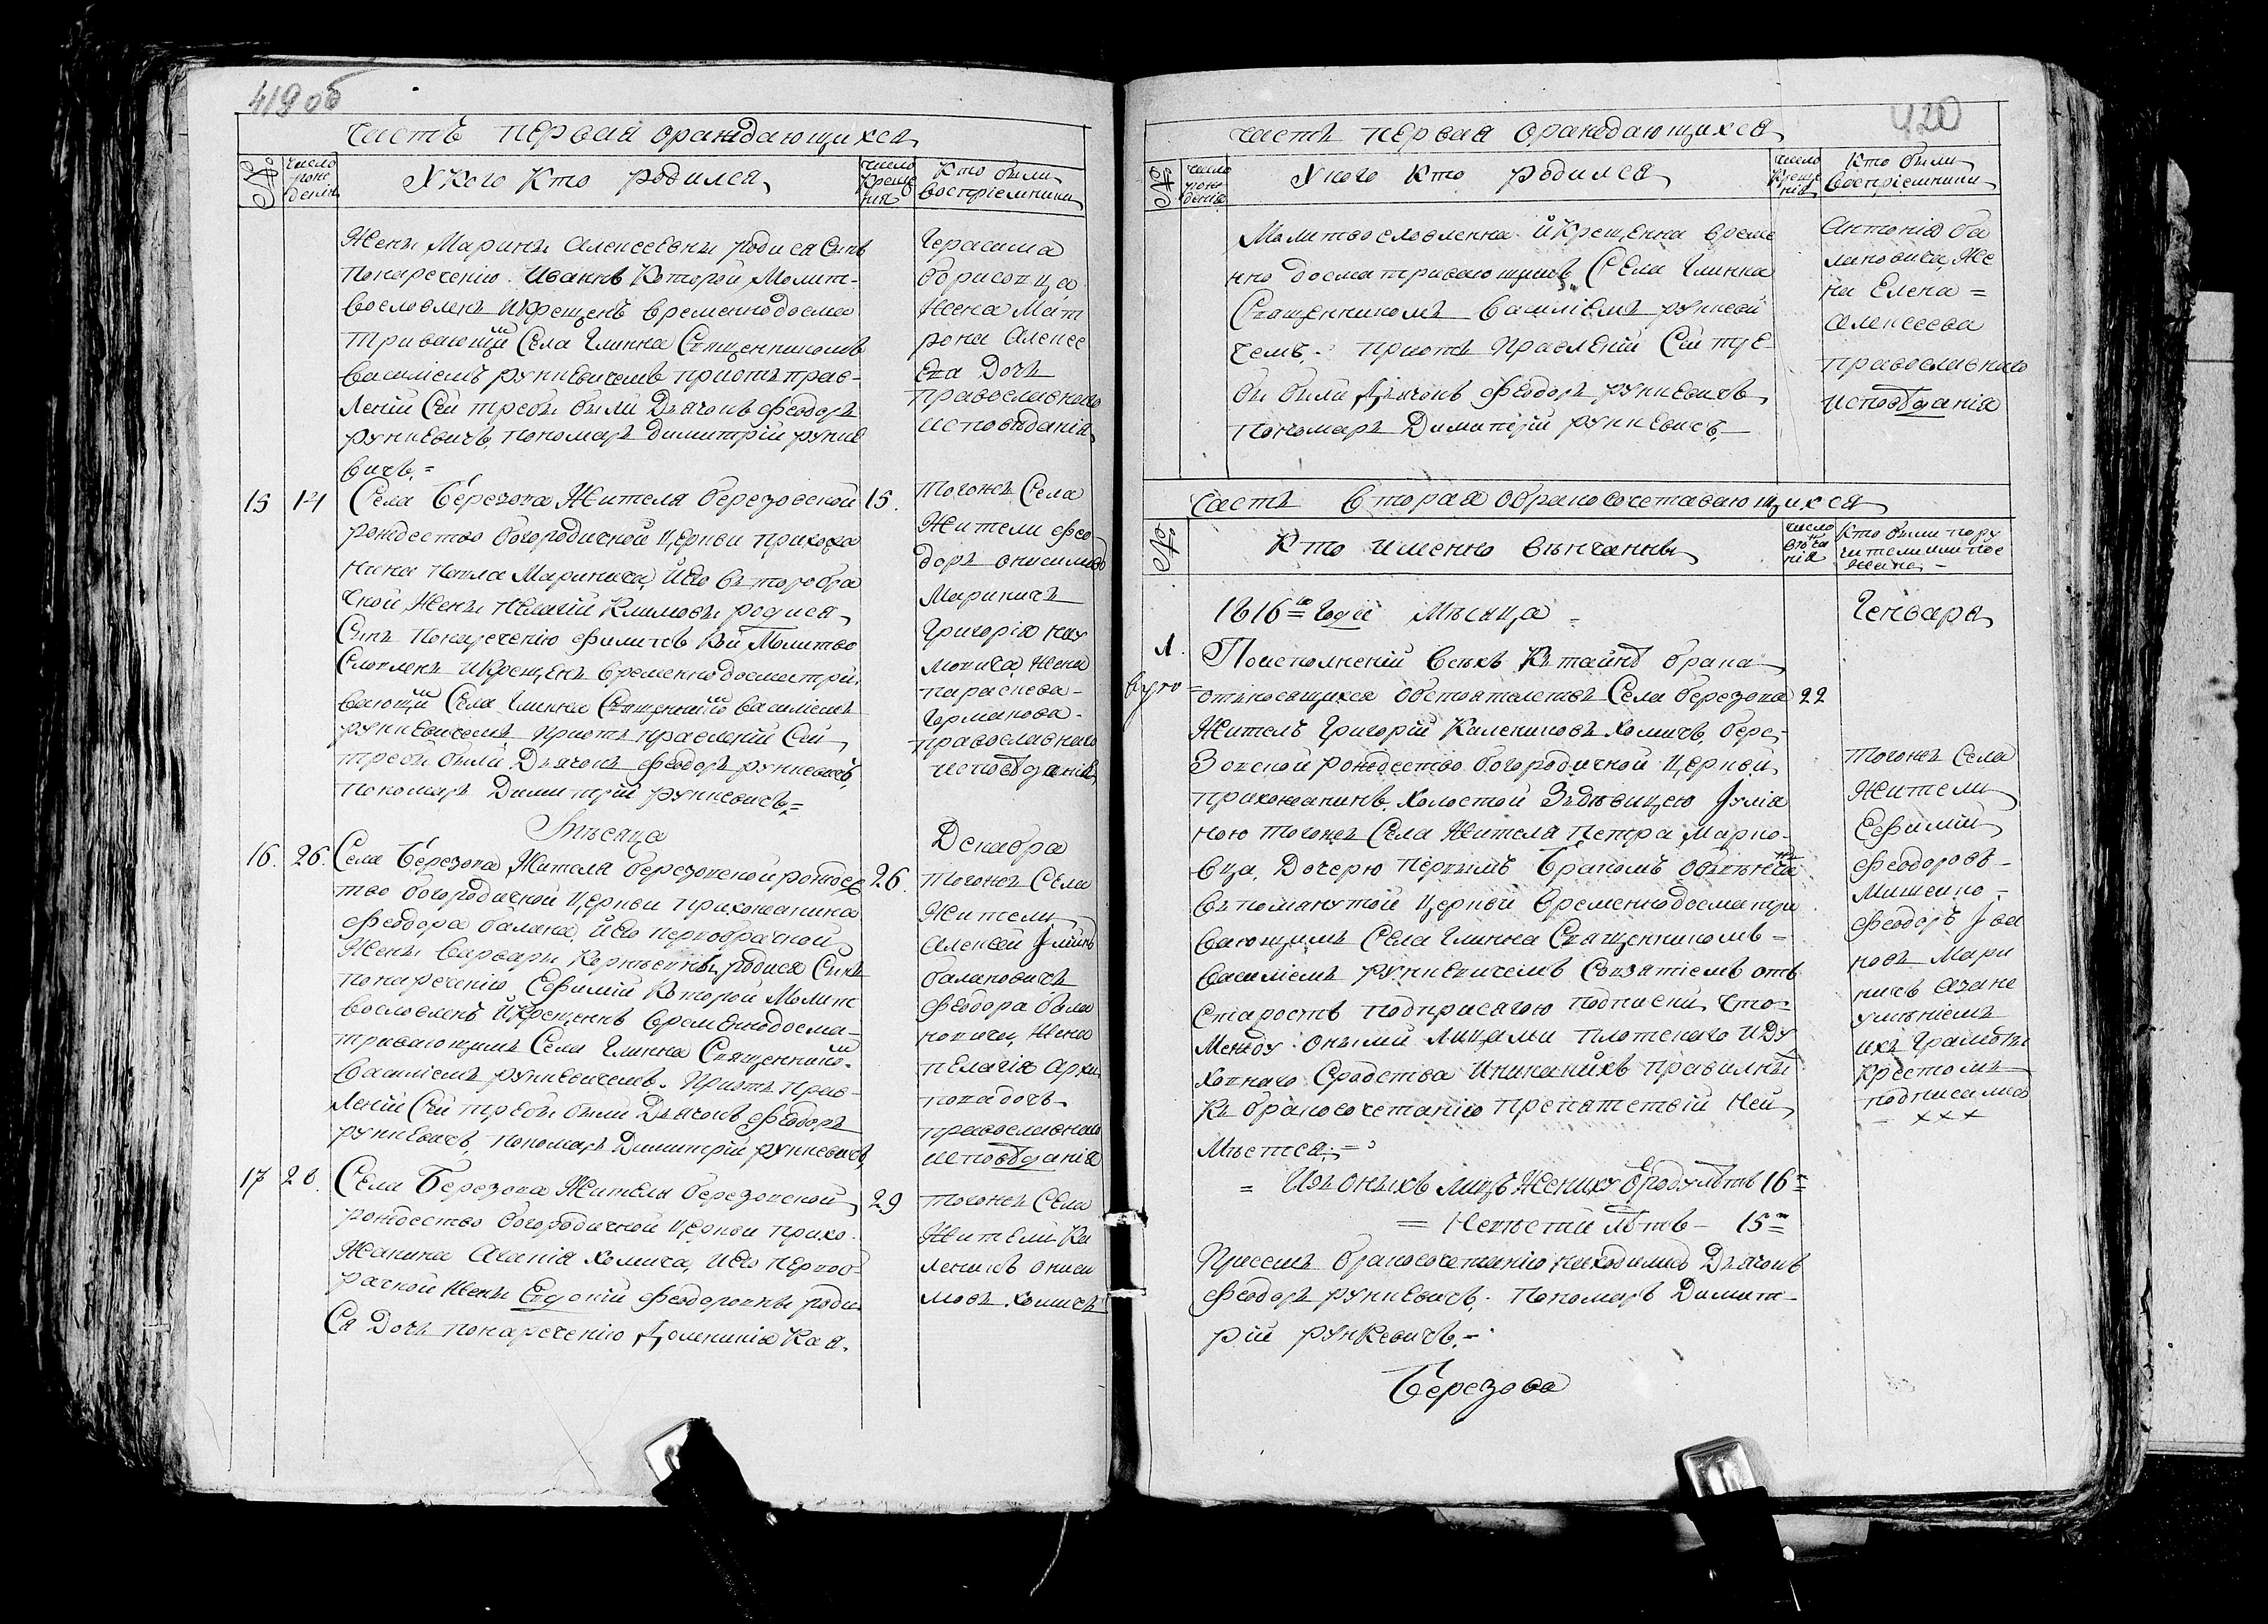 419 об
часть первая ораждающихся
№ число рождения У Кого Кто родился число крещения Кто были восприемники
Жены Марины Алексеевны родися Сынъ
понаречению Иваннъ Которой Молит-
вословленъ Икрещенъ временнодосма
тривающимъ Села Глинна Священникомъ
Василиемъ рункевичемъ приотправ-
лении Сей требы были Дьячокъ Феодоръ
рункевичъ, пономаръ Димитрій рунке
вичъ. =
Герасима
Борисовца
Жена Мат
рона Алексе
ева Дочь
православнаго
исповѣданія
15 14 Села Березова Жителя березовской 15.
рождество богородичной Церкви прихожа
нина Павла Маринича, Иего второбра
чной Жены Пелагіи Климовы родися
Сынъ понаречению Филиппъ Кой Молитво
Словленъ Икрещенъ временнодосматри
вающимъ Села Глинна Священникомъ Василиемъ
рункевичемъ, Приотправлении Сей
требы были Дьячокъ Феодоръ рункевичъ,
пономаръ Димитрій рункевичъ =
Тогожъ Села
Жители Фео
доръ Онисимовъ
Мариничъ
Григорія Нау
мовича Жена
параскева
Германова
православнаго
исповѣданія
Мѣсяца Декабра
16. 26. Села Березова Жителя березовской рождес 26.
тво богородичной Церкви прихожанина
Феодора балана, Иего первобрачной
Жены Варвары Корнѣевны, родися Сынъ
понаречению Ефимій Которой Молит
вословленъ Икрещеннъ временнодосма-
тривающимъ Села Глинна Священникомъ
Василиемъ рункевичемъ. Приотправ-
лении Сей требы были Дьячокъ Феодоръ
рункевичъ, пономаръ Димитрій рункевичъ,
Тогожъ Села
Жители
Алексей
балановичъ
Феодора бала
новича, Жена
пелагія Архи
пова дочь
православнаго
исповѣданія
17 28. Села Березова Жителя березовской 29
рождество богородичной Церкви прихо
жанина Аханія Хомича, Иего первоб
рачной Жены Евдокіи Феодоровны роди
Ся Дочь понаречению Домникія Кая
Тогожъ Села
Жители Ка
леникъ Ониси
мовъ Хомичъ
420
часть первая ораждающихся
№ число рождения У кого Кто родился число крещения Кто были восприемники
Молитвословленна ИКрещенна време
нно досматривающимъ Села Глинна
Священникомъ Василиемъ рункеви
чемъ. приотправлении Сей тре-
бы были Дьячокъ Феодоръ рункевичъ
пономаръ Димитрій рункевичъ.
Антонія ба
лановича, Же
на Елена =
Алексеева
православнаго
исповѣданія
Часть вторая обракосочетавающихся
№ Кто именно вѣнчанны число вѣнчанія Кто были поручители или поезжане
1816го Года Мѣсяца Генваря
1. Поисполнении всѣхъ Ктайнѣ брака
относящихся обстоятелствъ Села березова 22
Жителъ Григорій Калениковъ Хомичъ, бере-
Зовской рождество богородичной Церкви
прихожанинъ. Холостой Здѣвицею Iулія
ною тогожъ Села Жителя петра Марко-
вца, Дочерю первымъ Бракомъ обвѣнчанъ
въпомянутой Церкви временнодосматри
вающимъ Села Глинна Священникомъ =
Василиемъ рункевичемъ Совзятіемъ отъ
Старостъ подприсягою подписки, что-
Между оными Лицами плотскаго Иду
ховнаго Сродства Иникакихъ правилны
Къ бракосочетанію препятствій Неи
Мѣется. =
= Изъ оныхъ лицъ Жениху Городу лѣтъ 16
= Невѣсти Лѣтъ - 15
Присемъ бракосочетанію находились Дьячокъ
Феодоръ рункевичъ. пономаръ Димит-
рій рункевичъ. =
Тогожъ Села
Жители
Ефимій
Феодоровъ
Мишенко
Феодоръ Iва
новъ Мари
ничъ Азане
умѣніемъ
ихъ Грамоты
крестомъ
подписались
- ххх
Березова